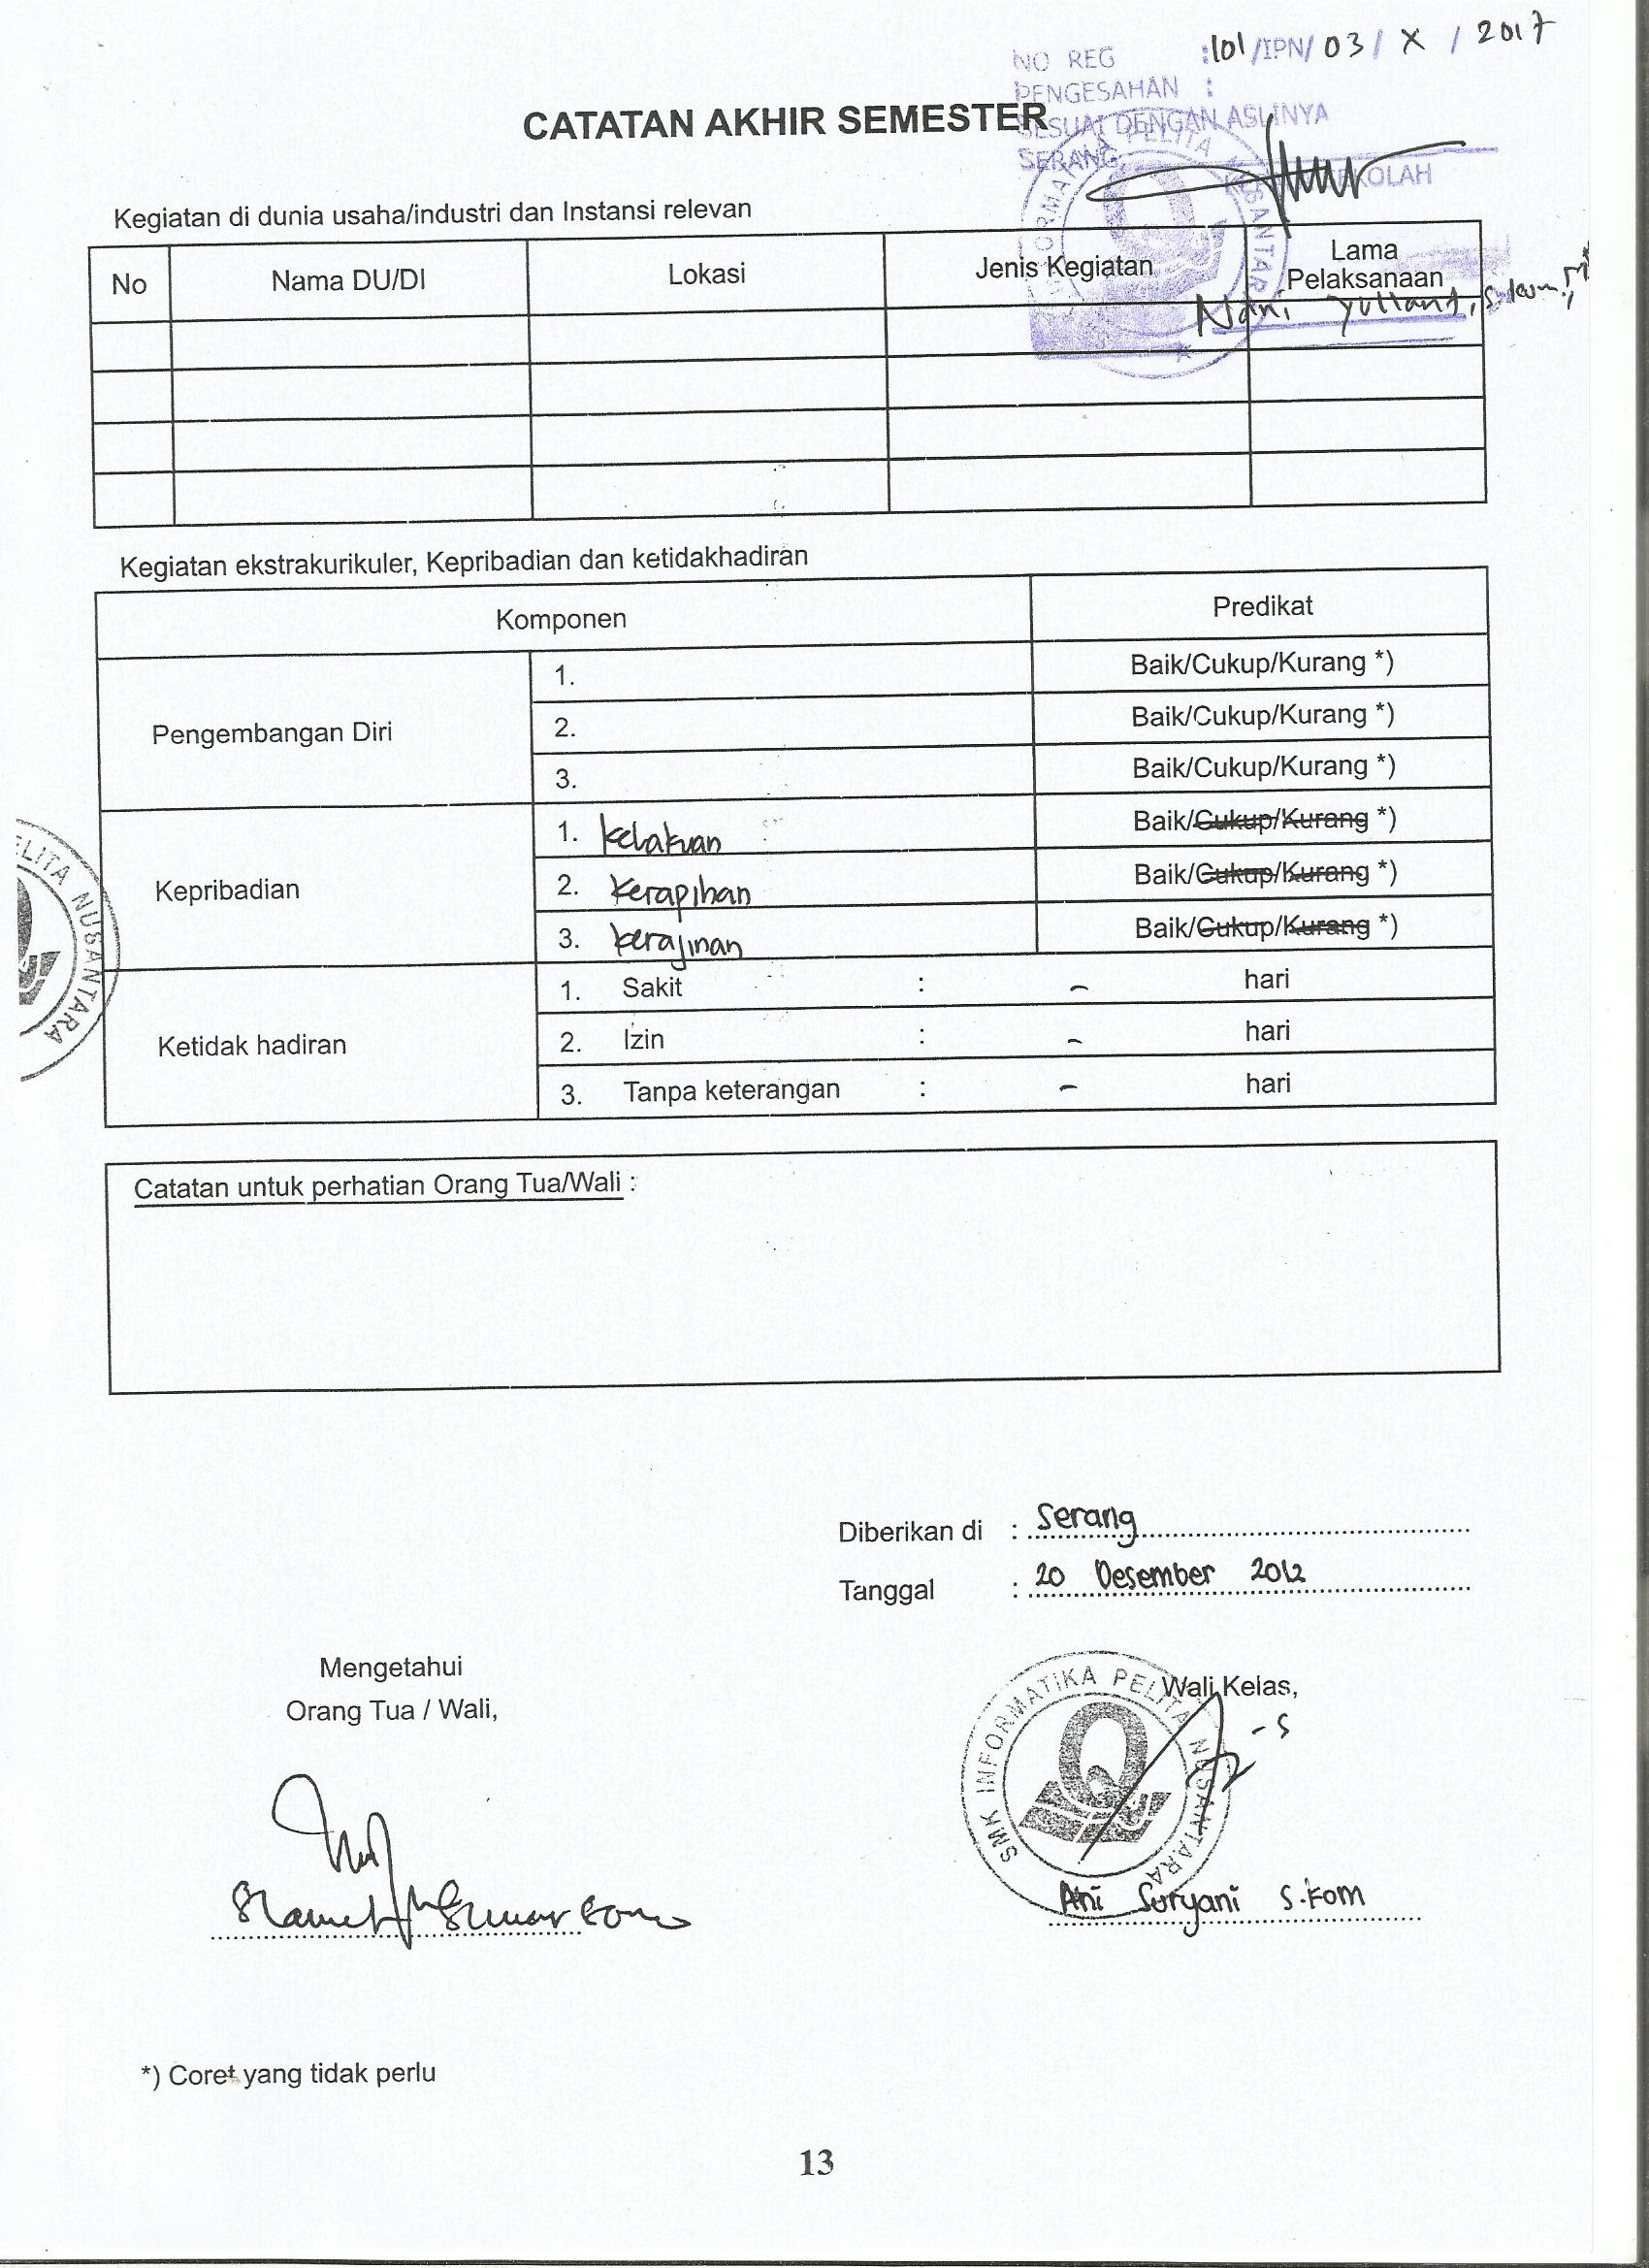 NO REG :101/IPN/03/X/2017
PENGESAHAN :
SESUAI DENGAN ASLINYA
SERANG,
SEKOLAH
CATATAN AKHIR SEMESTER
Kegiatan di dunia usaha/industri dan Instansi relevan
No Nama DU/DI Lokasi Jenis Kegiatan Lama Pelaksanaan
Kegiatan ekstrakurikuler, Kepribadian dan ketidakhadiran
Komponen Predikat
Pengembangan Diri
1. Baik/Cukup/Kurang *)
2. Baik/Cukup/Kurang *)
3. Baik/Cukup/Kurang *)
Kepribadian
1. Kelakuan Baik/Cukup/Kurang *)
2. Kerapihan Baik/Cukup/Kurang *)
3. Kerajinan Baik/Cukup/Kurang *)
Ketidak hadiran
1. Sakit : - hari
2. Izin : - hari
3. Tanpa keterangan : - hari
PELITA NUSANTARA
Catatan untuk perhatian Orang Tua/Wali :
Diberikan di : Serang
Tanggal : 20 Desember 2012
Mengetahui
Orang Tua / Wali,
Wali Kelas,
SMK INFORMATIKA PELITA NUSANTARA
Ani Suryani S.Kom
*) Coret yang tidak perlu
13